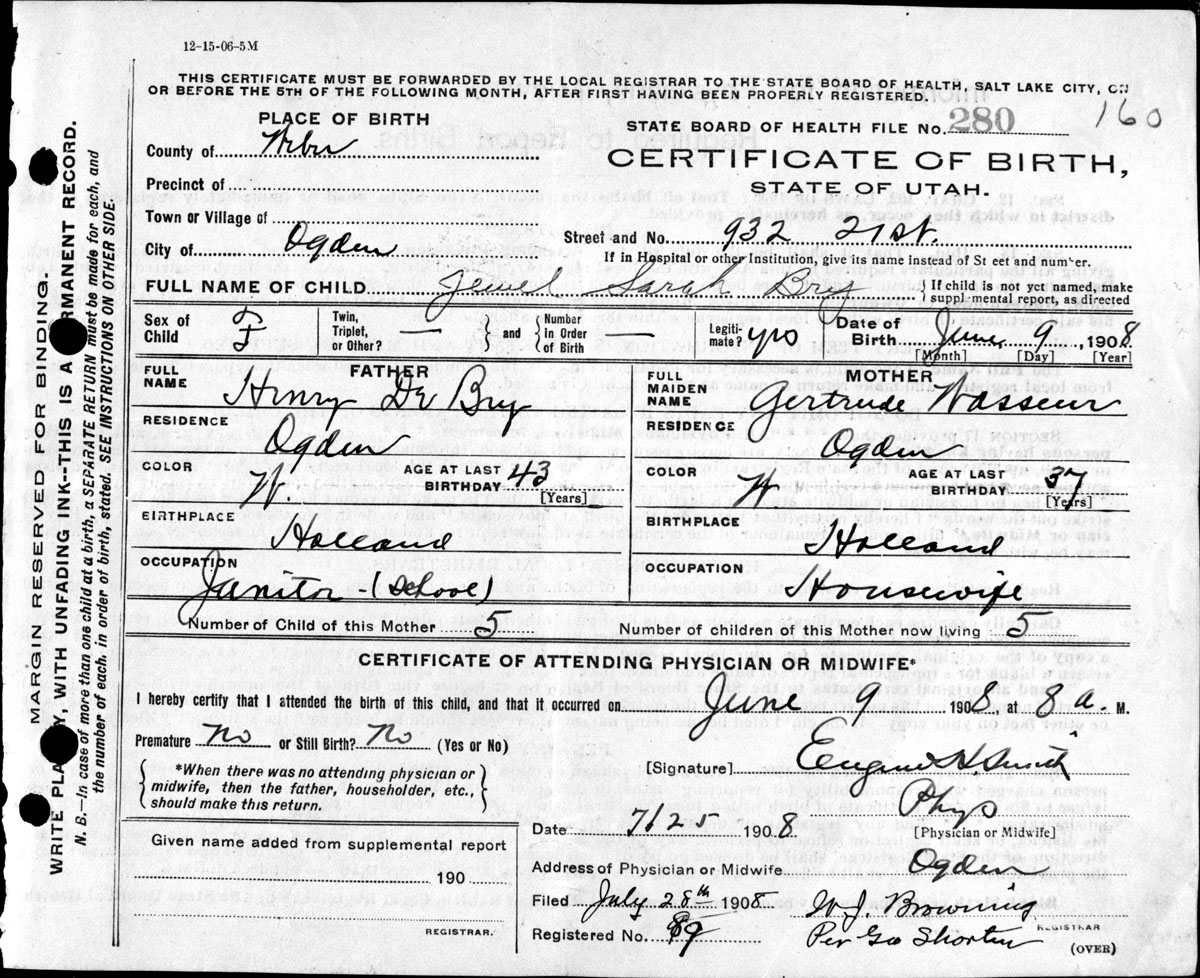 12-15-06-5M
THIS CERTIFICATE MUST BE FORWARDED BY THE LOCAL REGISTRAR TO THE STATE BOARD OF HEALTH, SALT LAKE CITY, ON
OR BEFORE THE 5TH OF THE FOLLOWING MONTH, AFTER FIRST HAVING BEEN PROPERLY REGISTERED.
160
PLACE OF BIRTH
STATE BOARD OF HEALTH FILE No. 280
County of Weber
CERTIFICATE OF BIRTH,
STATE OF UTAH.
Precinct of
Town or Village of
City of Ogden
Street and No. 932 21st.
If in Hospital or other Institution, give its name instead of St eet and number.
FULL NAME OF CHILD Jewel Sarah Bry { If child is not yet named, make
supplmental report, as directed
Sex of Child F
Twin, Triplet, or Other? — } and { Number in Order of Birth —
Legitimate? yes
Date of Birth June 9 1908
[Month] [Day] [Year]
FATHER
FULL NAME Henry De Bry
MOTHER
FULL MAIDEN NAME Gertrude Wasseur
RESIDENCE Ogden
RESIDENCE Ogden
COLOR W. AGE AT LAST BIRTHDAY 43 [Years]
COLOR W AGE AT LAST BIRTHDAY 37 [Years]
BIRTHPLACE Holland
BIRTHPLACE Holland
OCCUPATION Janitor - (School)
OCCUPATION Housewife
Number of Child of this Mother 5
Number of children of this Mother now living 5
CERTIFICATE OF ATTENDING PHYSICIAN OR MIDWIFE*
I hereby certify that I attended the birth of this child, and that it occurred on June 9 1908 at 8 a. M.
Premature No or Still Birth? No (Yes or No)
[Signature] Eugene H Smith
{ *When there was no attending physician or
midwife, then the father, householder, etc.,
should make this return. }
Phys
[Physician or Midwife]
Date 7/25 1908
Given name added from supplemental report
190
REGISTRAR.
Address of Physician or Midwife Ogden
Filed July 28th 1908 W. J. Browning
REGISTRAR
Registered No. 89 Per Geo Shorten
(OVER)
MARGIN RESERVED FOR BINDING.
WRITE PLA Y, WITH UNFADING INK--THIS IS A RMANENT RECORD.
N. B.--In case of more than one child at a birth, a SEPARATE RETURN must be made for each, and
the number of each, in order of birth, stated. SEE INSTRUCTIONS ON OTHER SIDE.